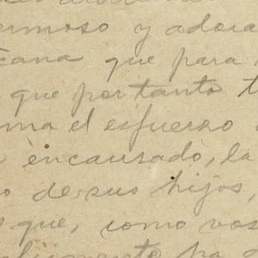 ermoso y adora
cana que para
que por tanto t
ma el esfuerzo
encausado, la
o de sus hijos,
que, como vos